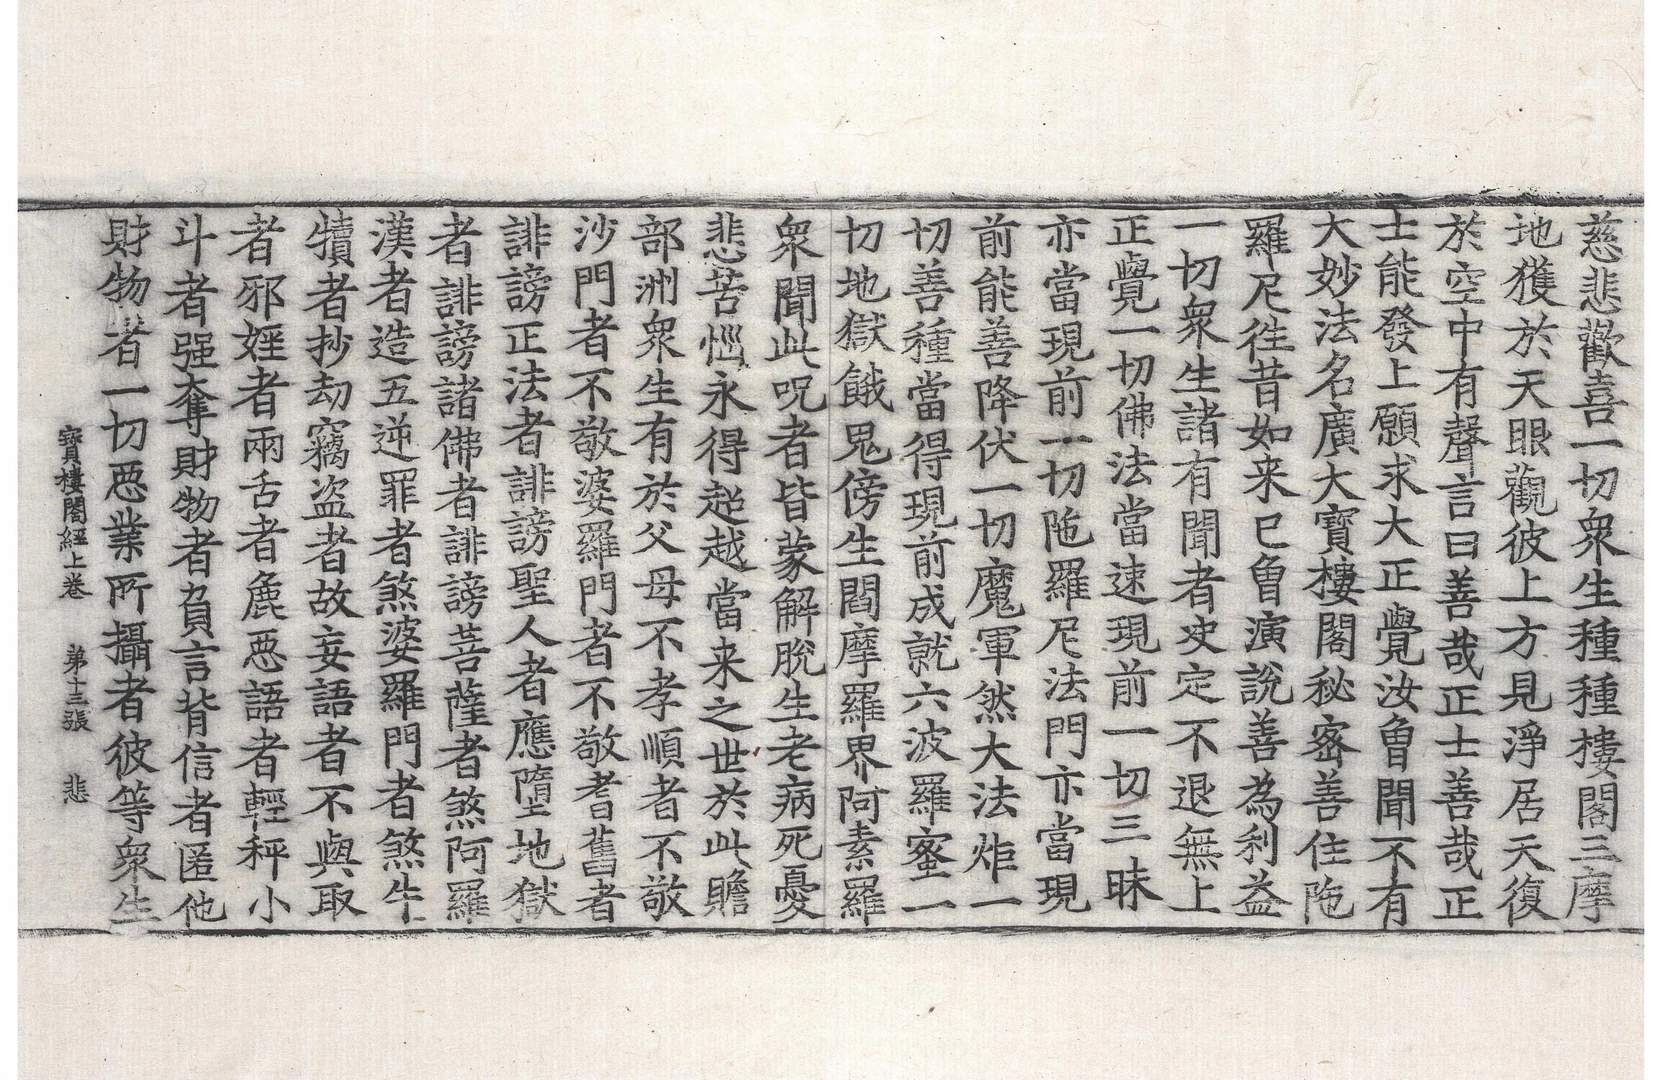 慈悲歡喜一切衆生種種樓閣三摩
地獲於天眼觀彼上方見淨居天復
於空中有聲言曰善哉正士善哉正
士能發上願求大正覺汝曾聞不有
大妙法名廣大寶樓閣秘密善住陁
羅尼徃昔如来已曾演說善為利益
一切衆生諸有聞者決定不退無上
正覺一切佛法當速現前一切三昧
亦當現前一切陁羅尼法門亦當現
前能善降伏一切魔軍然大法炬一
切善種當得現前成就六波羅蜜一
切地獄餓鬼傍生閻摩羅界阿素羅
衆聞此呪者皆蒙解脫生老病死憂
悲苦惱永得超越當来之世於此贍
部洲衆生有於父母不孝順者不敬
沙門者不敬婆羅門者不敬耆舊者
誹謗正法者誹謗聖人者應墮地獄
者誹謗諸佛者誹謗菩薩者煞阿羅
漢者造五逆罪者煞婆羅門者煞牛
犢者抄劫竊盗者故妄語者不與取
者邪婬者兩舌者麁惡語者輕秤小
斗者强奪財物者負言背信者匿他
財物者一切惡業所攝者彼等衆生
寶樓閣經上卷　第十三張　悲